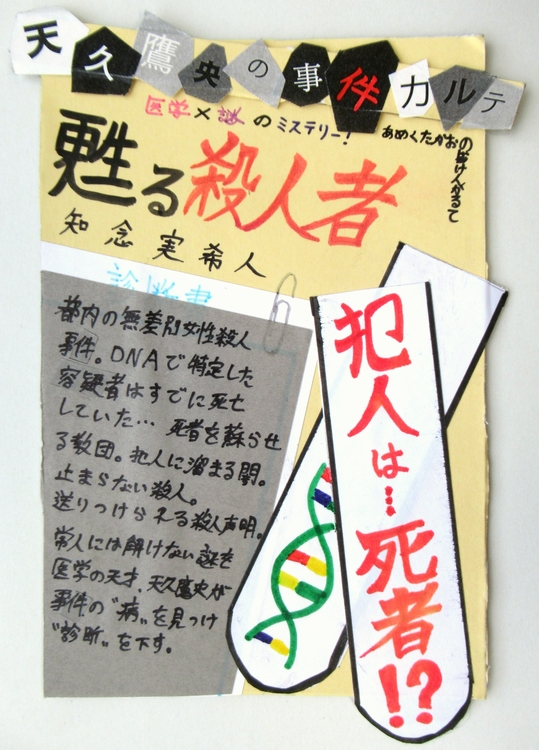 天久鷹央の事件カルテ
医学×謎のミステリー!
あめくたかおの事けんかるて
甦る殺人者
知念実希人
診断書
都内の無差別女性殺人
事件。DNAで特定した
容疑者はすでに死亡
していた… 死者を蘇らせ
る教団。犯人に溜まる闇。
止まらない殺人。
送りつけられる殺人声明。
常人には解けない謎を
医学の天才、天久鷹央が
事件の"病"を見つけ
"診断"を下す。
犯人は…死者!?